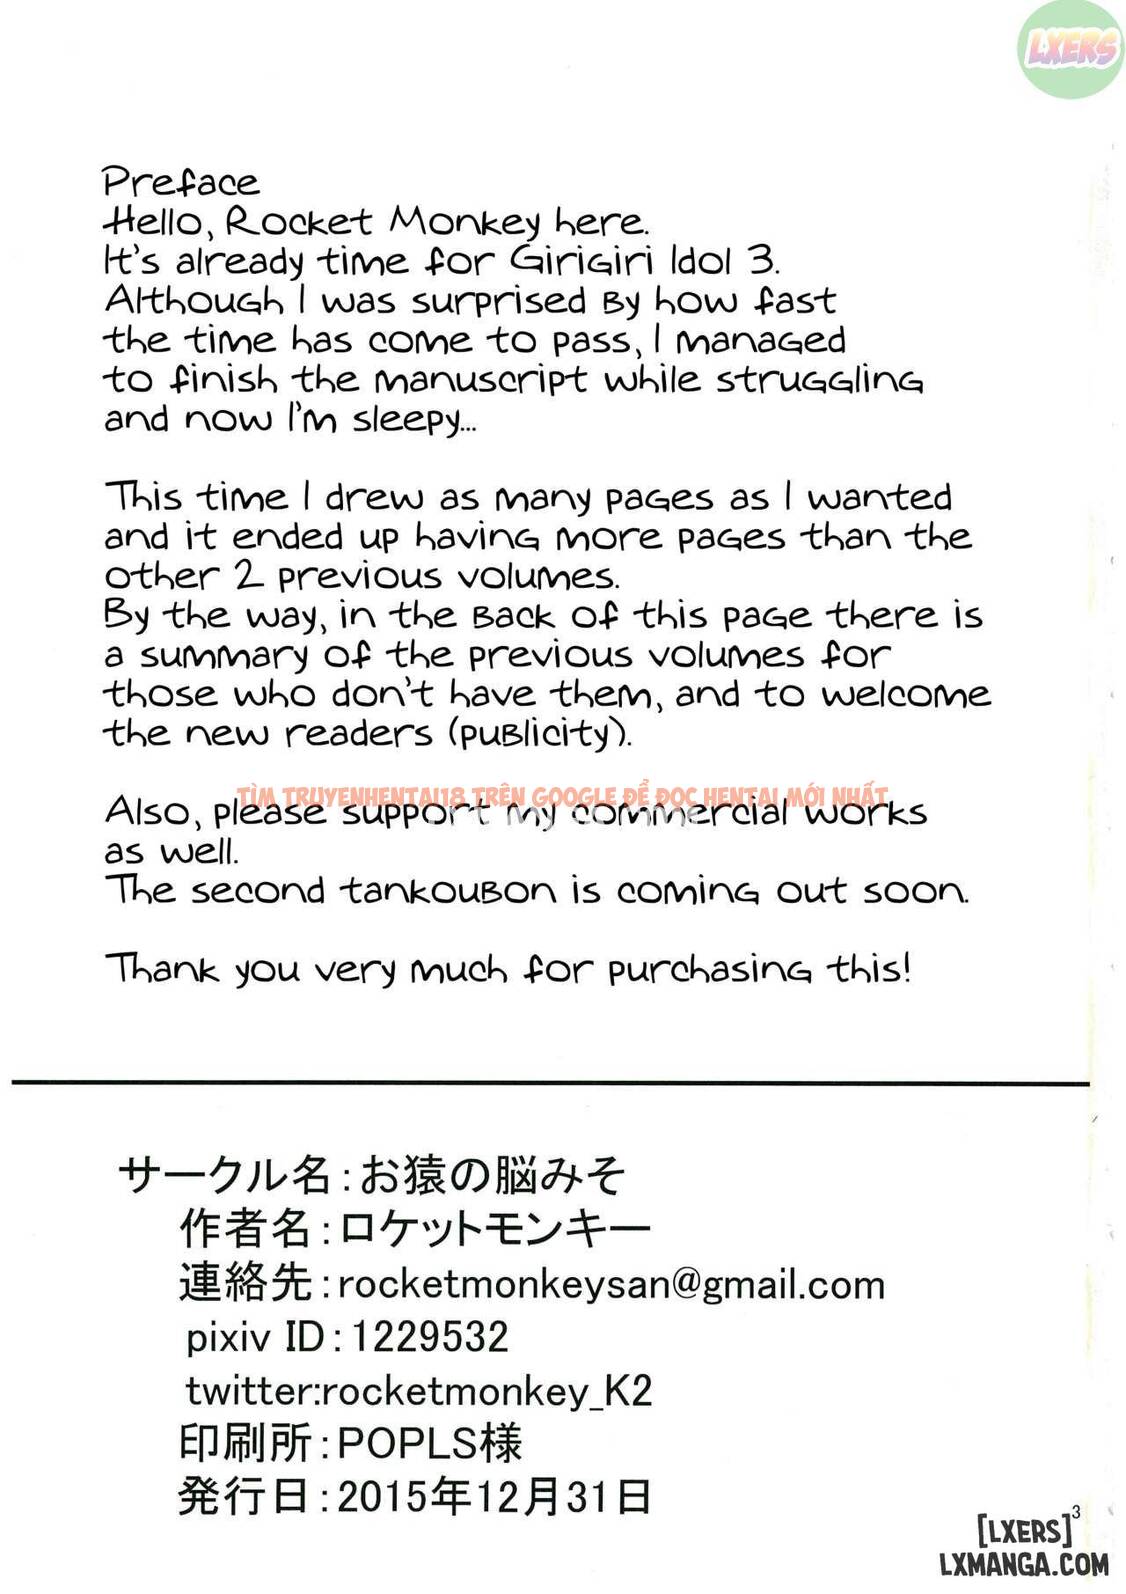 LXERS
Preface
Hello, Rocket Monkey here.
It's already time for Girigiri Idol 3.
Although I was surprised by how fast
the time has come to pass, I managed
to finish the manuscript while struggling
and now I'm sleepy...
This time I drew as many pages as I wanted
and it ended up having more pages than the
other 2 previous volumes.
By the way, in the back of this page there is
a summary of the previous volumes for
those who don't have them, and to welcome
the new readers (publicity).
TÌM TRUYENHENTAI18 TRÊN GOOGLE ĐỂ ĐỌC HENTAI MỚI NHẤT
Also, please support my commercial works
as well.
The second tankoubon is coming out soon.
Thank you very much for purchasing this!
サークル名:お猿の脳みそ
作者名:ロケットモンキー
連絡先:rocketmonkeysan@gmail.com
pixiv ID:1229532
twitter:rocketmonkey_K2
印刷所:POPLS様
発行日:2015年12月31日
3
[LXERS]
LXMANGA.COM